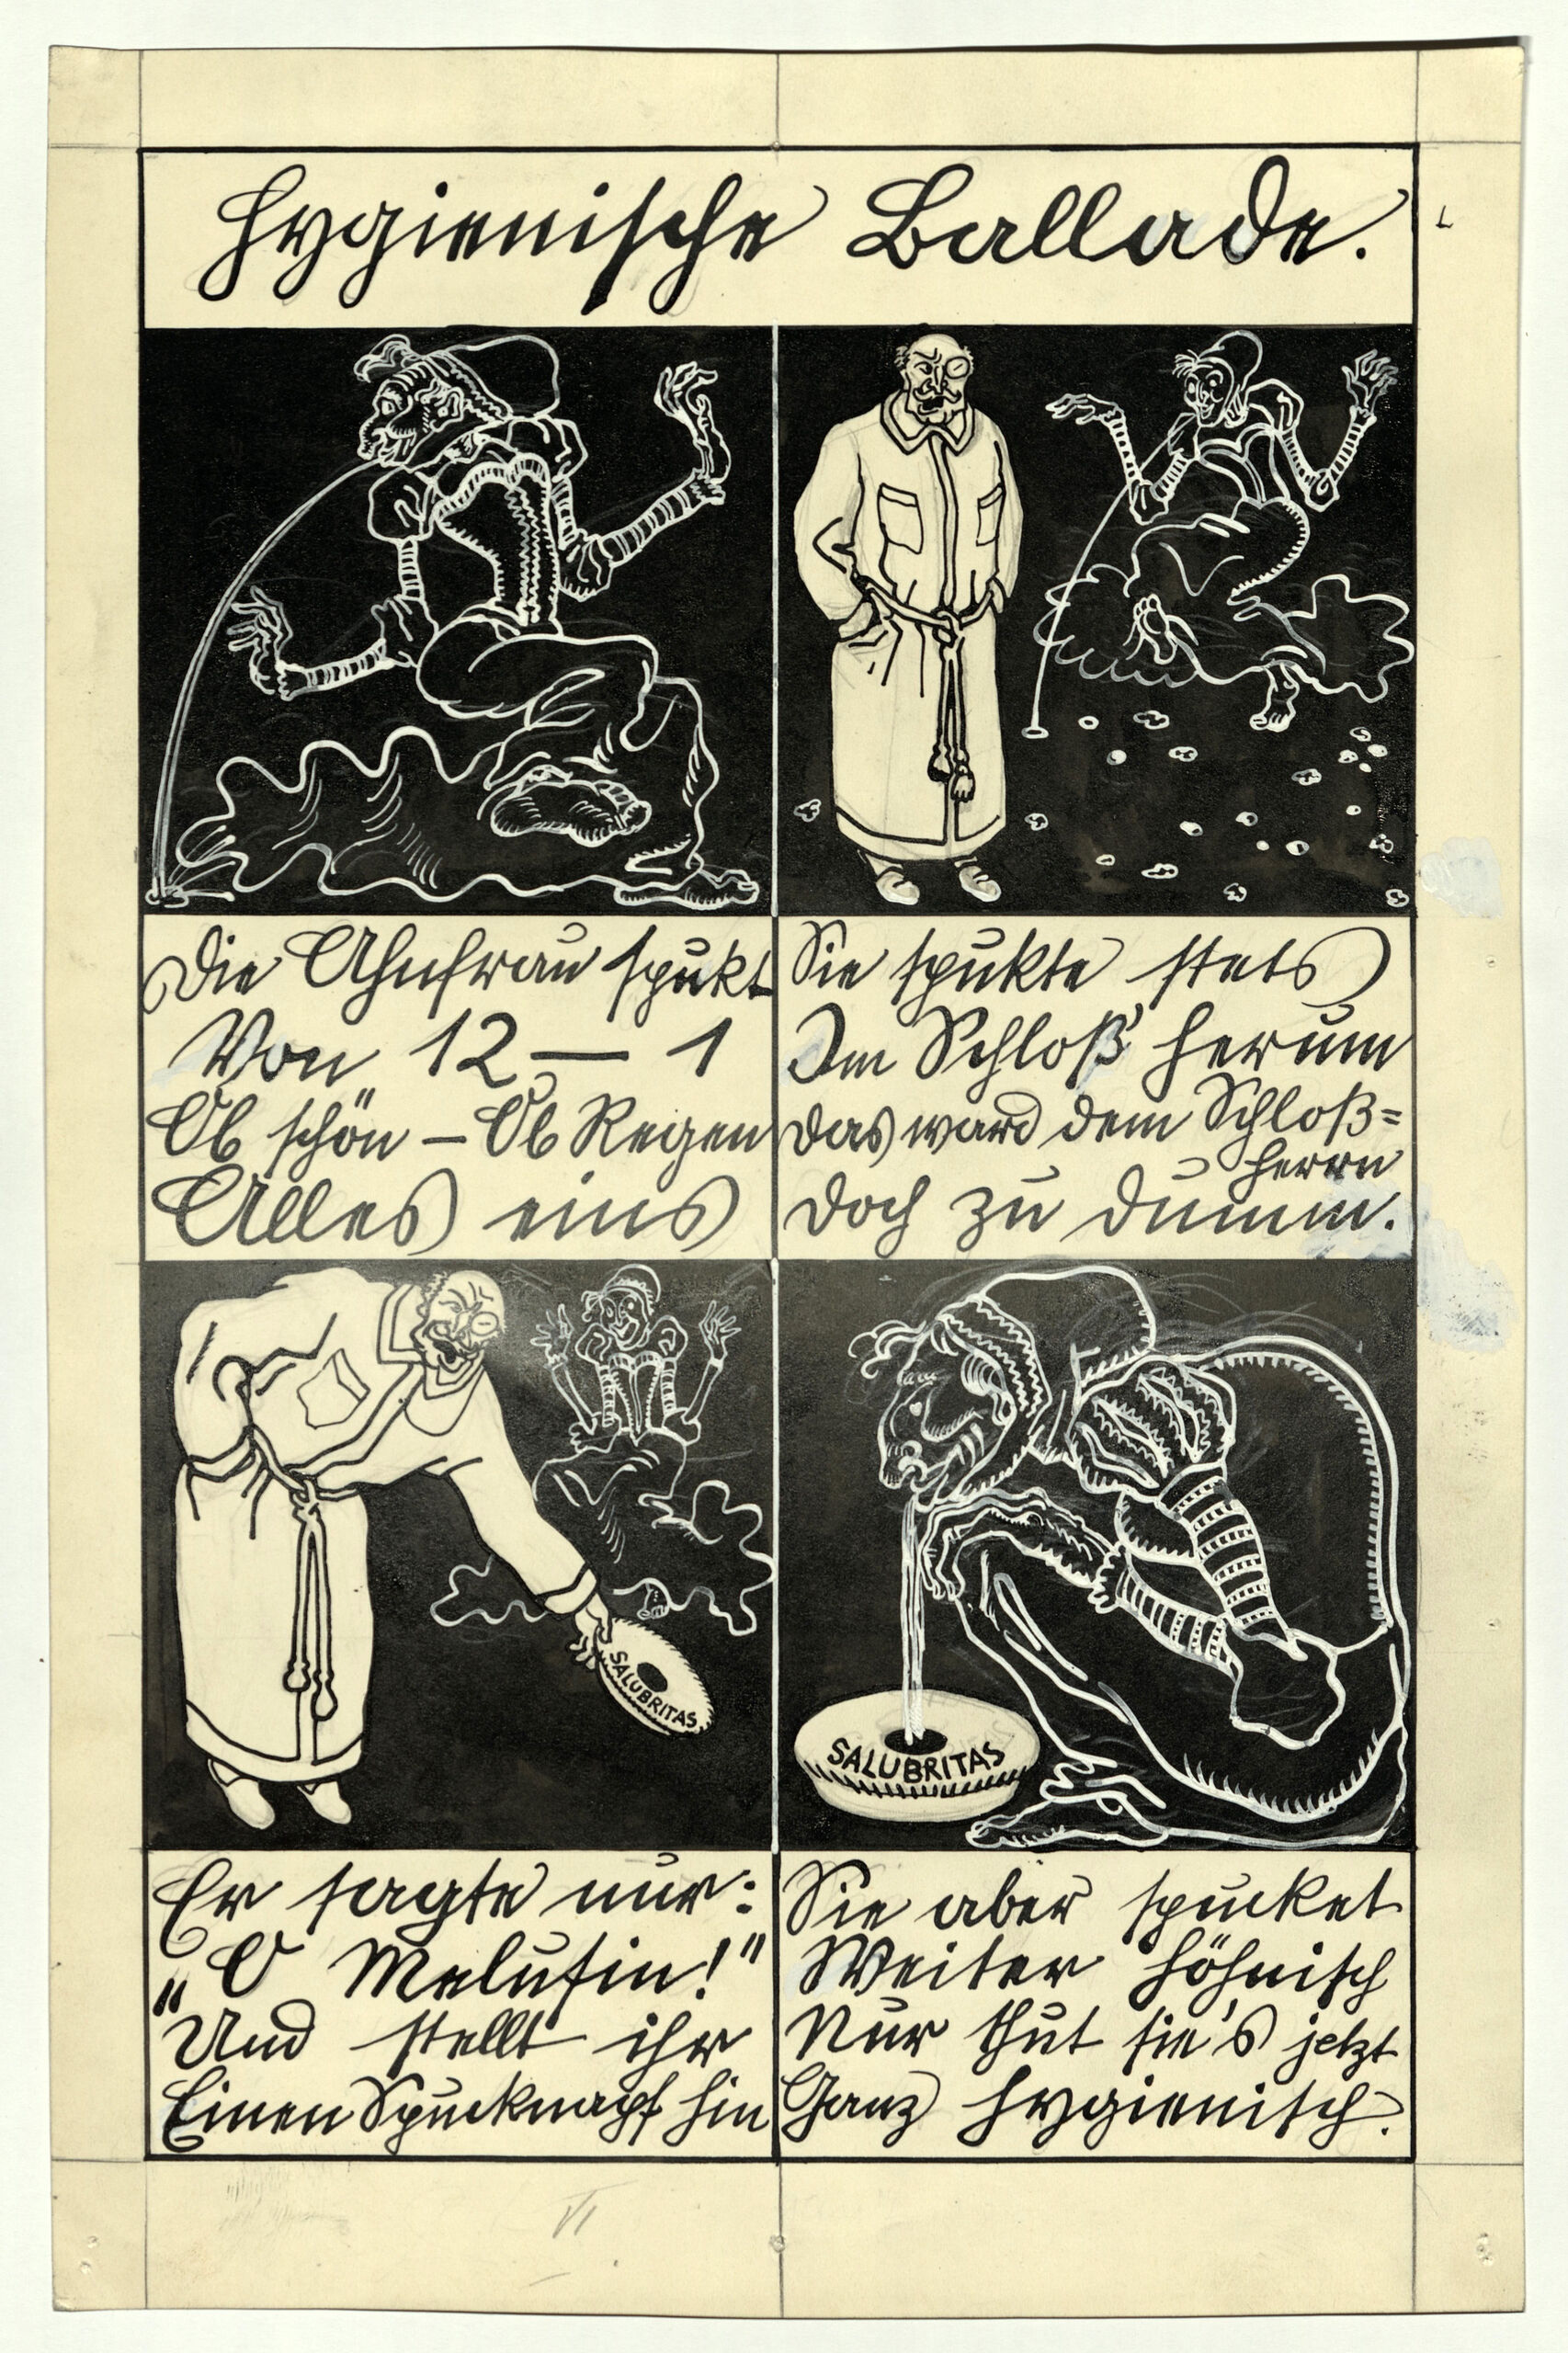 Hygienische Ballade.
Die Ahnfrau spukt
Von 12 — 1
Ob schön – Ob Regen
Alles eins
Sie spukte stets
Im Schloß herum
Das ward dem Schloß=
herrn
Doch zu dumm.
SALUBRITAS
SALUBRITAS
Er sagte nur:
„O Melusin!"
Und stellt ihr
Einen Spucknapf hin
Sie aber spucket
Weiter höhnisch
Nur thut sie's jetzt
Ganz hygienisch.
VI